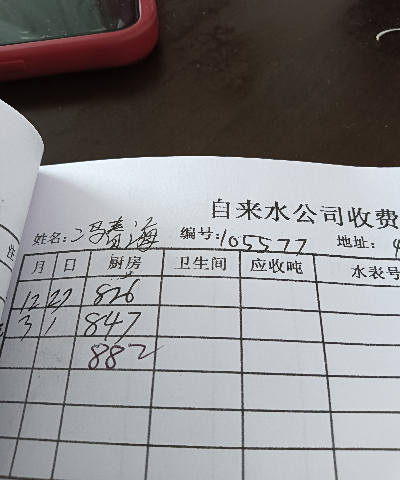 自来水公司收费
姓名:冯青海 编号:105577 地址:
月 日 厨房 卫生间 应收吨 水表号
12 27 826
3 1 847
882